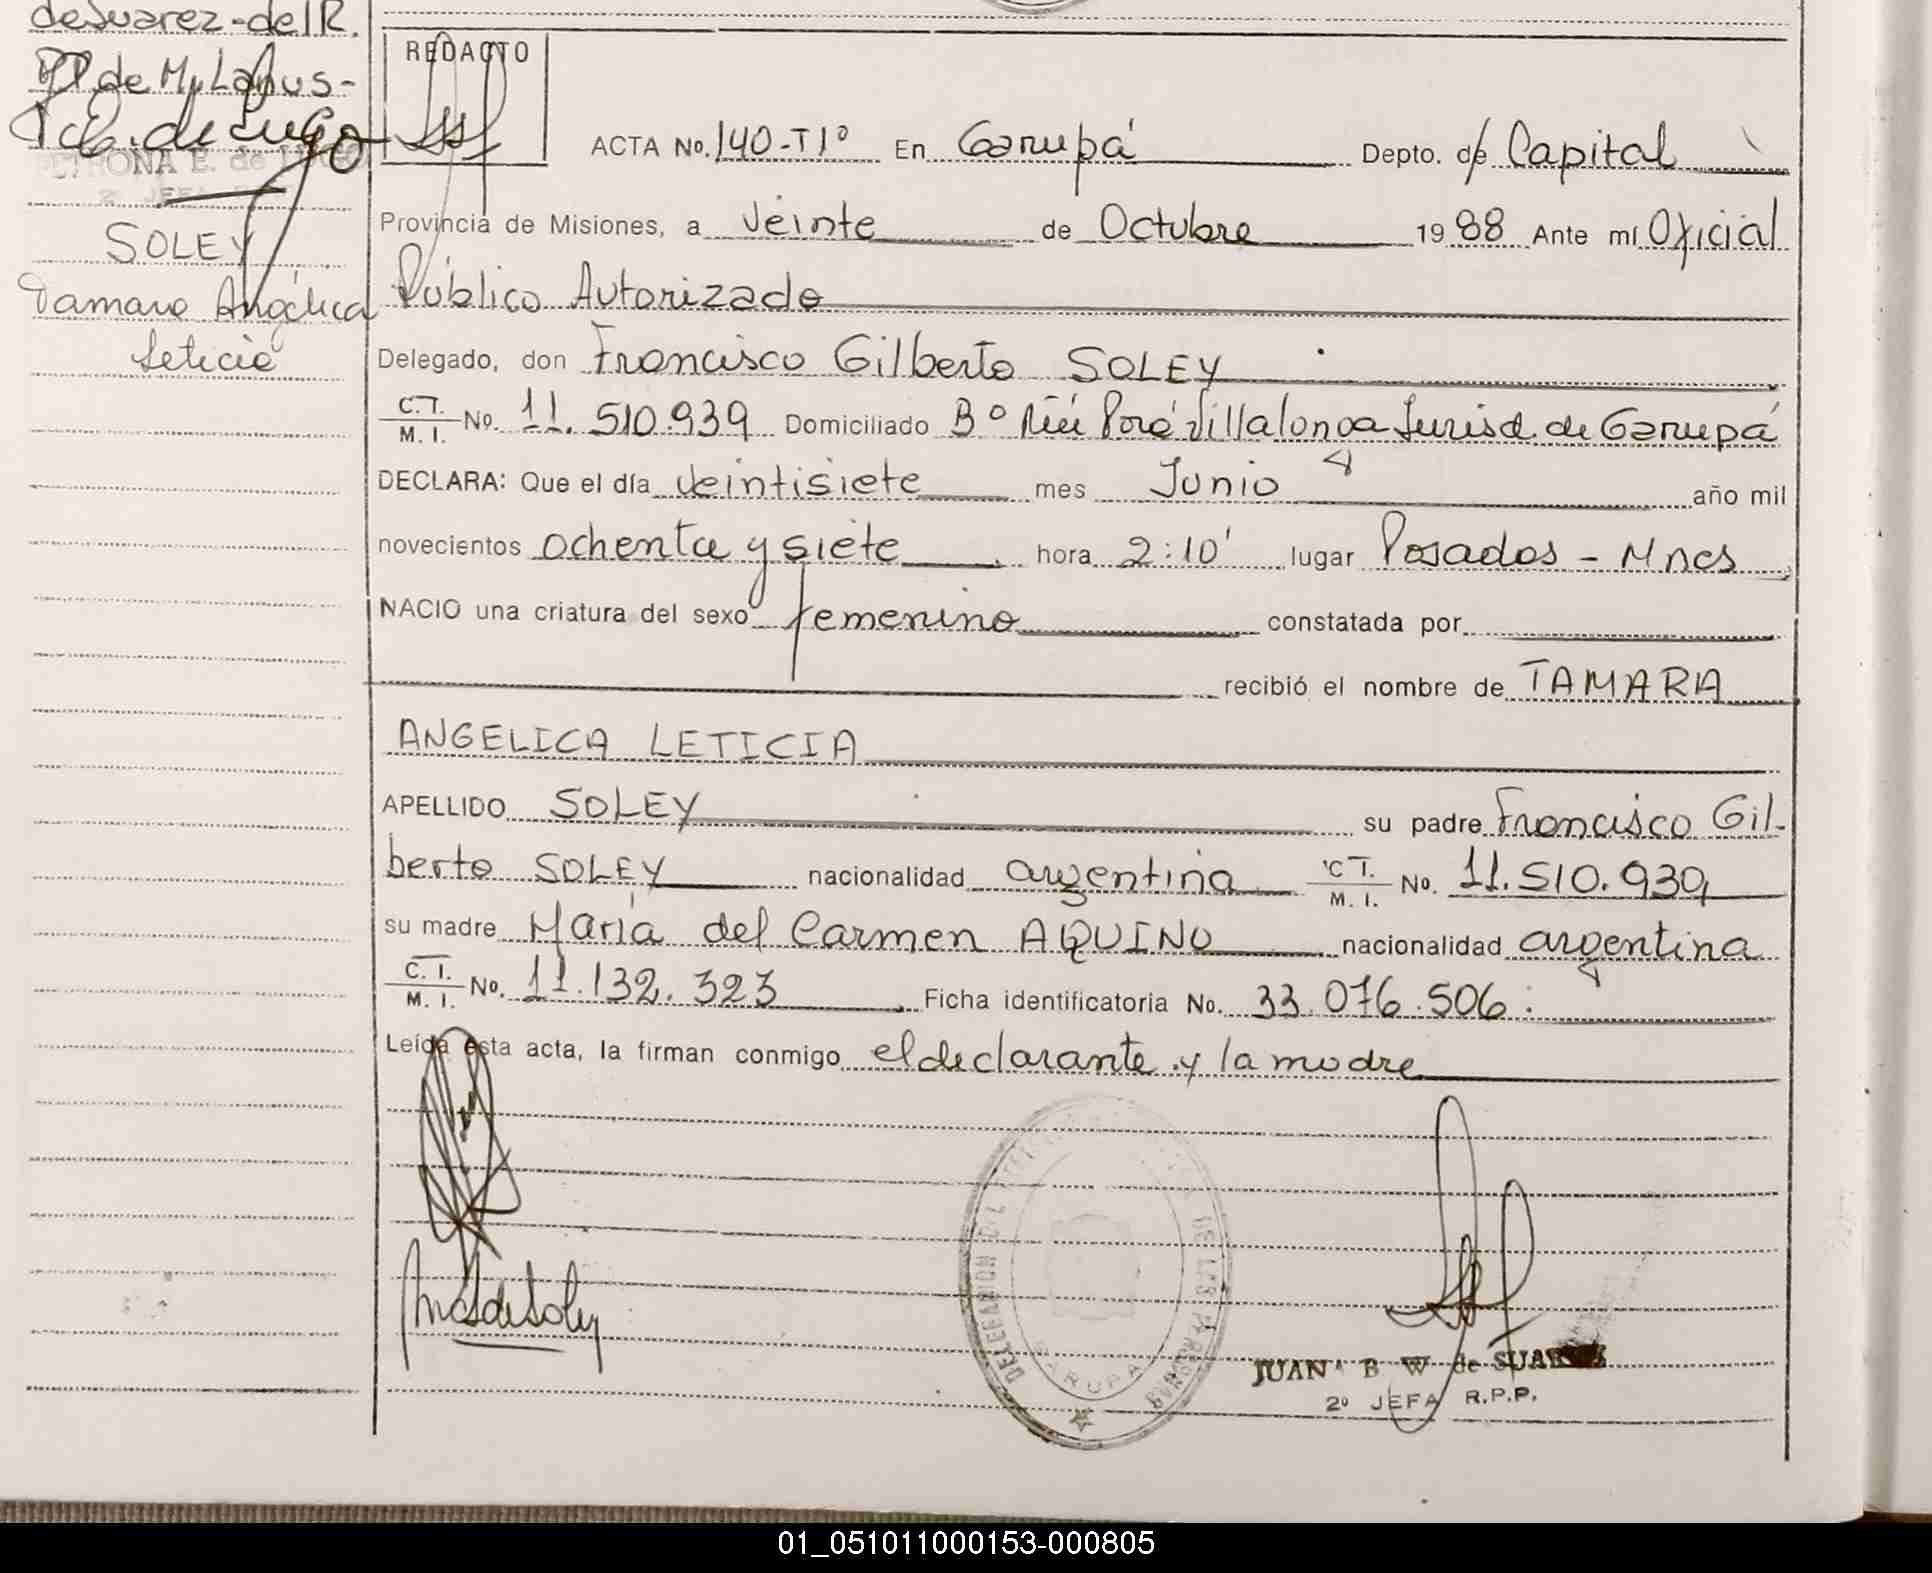 de Suarez - del R.
P.P. de M. Lanus -
REDACTO
ACTA No. 140-T1º En Garupá Depto. de Capital
PETRONA E. de LUGO
2º JEFA
SOLEY
Tamara Angélica
Leticia
Provincia de Misiones, a veinte de Octubre 1988 Ante mí Oficial
Público Autorizado
Delegado, don Francisco Gilberto SOLEY
C.I. M. I. No. 11.510.939 Domiciliado Bº Ñú Porá Villalonga Jurisd. de Garupá
DECLARA: Que el día veintisiete mes Junio año mil
novecientos ochenta y siete hora 2:10' lugar Posadas - Mnes
NACIO una criatura del sexo femenino constatada por
recibió el nombre de TAMARA
ANGELICA LETICIA
APELLIDO SOLEY su padre Francisco Gil-
berto SOLEY nacionalidad argentina C.I. M. I. No. 11.510.939
su madre María del Carmen AQUINO nacionalidad argentina
C. I. M. I. No. 11.132.323 Ficha identificatoria No. 33.076.506.
Leída esta acta, la firman conmigo el declarante y la madre
DELEGACION CIVIL DE LAS PERSONAS
GARUPA
JUANA B W de SUAREZ
2º JEFA R.P.P.
01_051011000153-000805